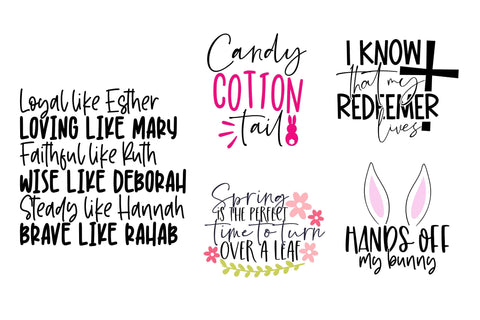 Loyal like Esther
LOVING LIKE MARY
Faithful like Ruth
WISE LIKE DEBORAH
Steady like Hannah
BRAVE LIKE RAHAB
Candy
COTTON
tail
I KNOW
that my
REDEEMER
lives
Spring
IS THE PERFECT
time to turn
OVER A LEAF
HANDS OFF
my bunny